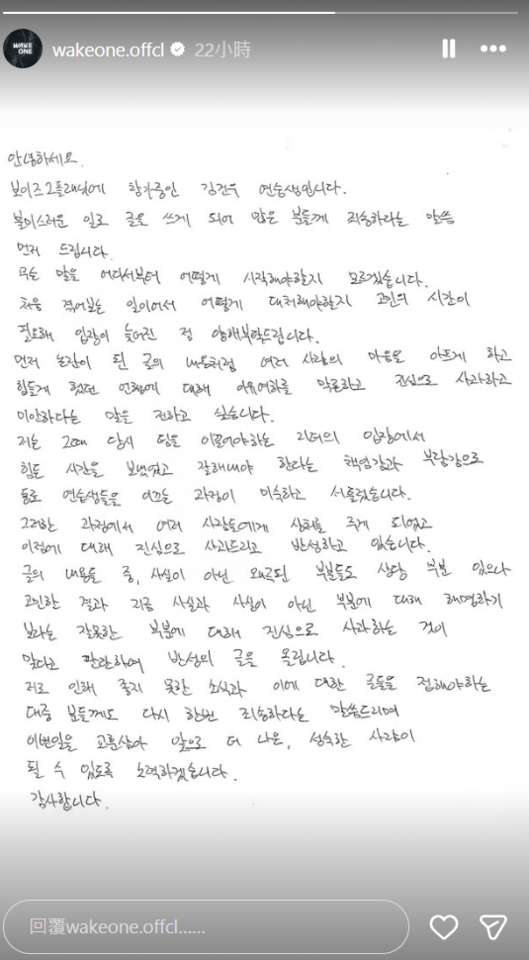 WAKE ONE
wakeone.offcl 22小時
안녕하세요.
보이즈2플래닛에 참가중인 김건우 연습생입니다.
불미스러운 일로 글을 쓰게 되어 많은 분들께 죄송하다는 말씀
먼저 드립니다.
무슨 말을 어디서부터 어떻게 시작해야할지 모르겠습니다.
처음 겪어보는 일이어서 어떻게 대처해야할지 고민의 시간이
필요해 입장이 늦어진 점 양해부탁드립니다.
먼저 논란이 된 글의 내용처럼 여러 사람의 마음을 아프게 하고
힘들게 했던 언행에 대해 이유여하를 막론하고 진심으로 사과하고
미안하다는 말을 전하고 싶습니다.
저는 그때 당시 팀을 이끌어야하는 리더의 입장에서
힘든 시간을 보냈었고 잘해내야 한다는 책임감과 부담감으로
동료 연습생들을 이끄는 과정이 미숙하고 서툴렀습니다.
그러한 과정에서 여러 사람들에게 상처를 주게 되었고
이점에 대해 진심으로 사과드리고 반성하고 있습니다.
글의 내용들 중, 사실이 아닌 왜곡된 부분들도 상당 부분 있으나
고민한 결과 지금 사실과 사실이 아닌 부분에 대해 해명하기
보다는 잘못한 부분에 대해 진심으로 사과하는 것이
맞다고 판단하여 반성의 글을 올립니다.
저로 인해 좋지 못한 소식과 이에 대한 글들을 접해야하는
대중 분들께도 다시 한번 죄송하다는 말씀드리며
이번일을 교훈삼아 앞으로 더 나은, 성숙한 사람이
될 수 있도록 노력하겠습니다.
감사합니다.
回覆wakeone.offcl......